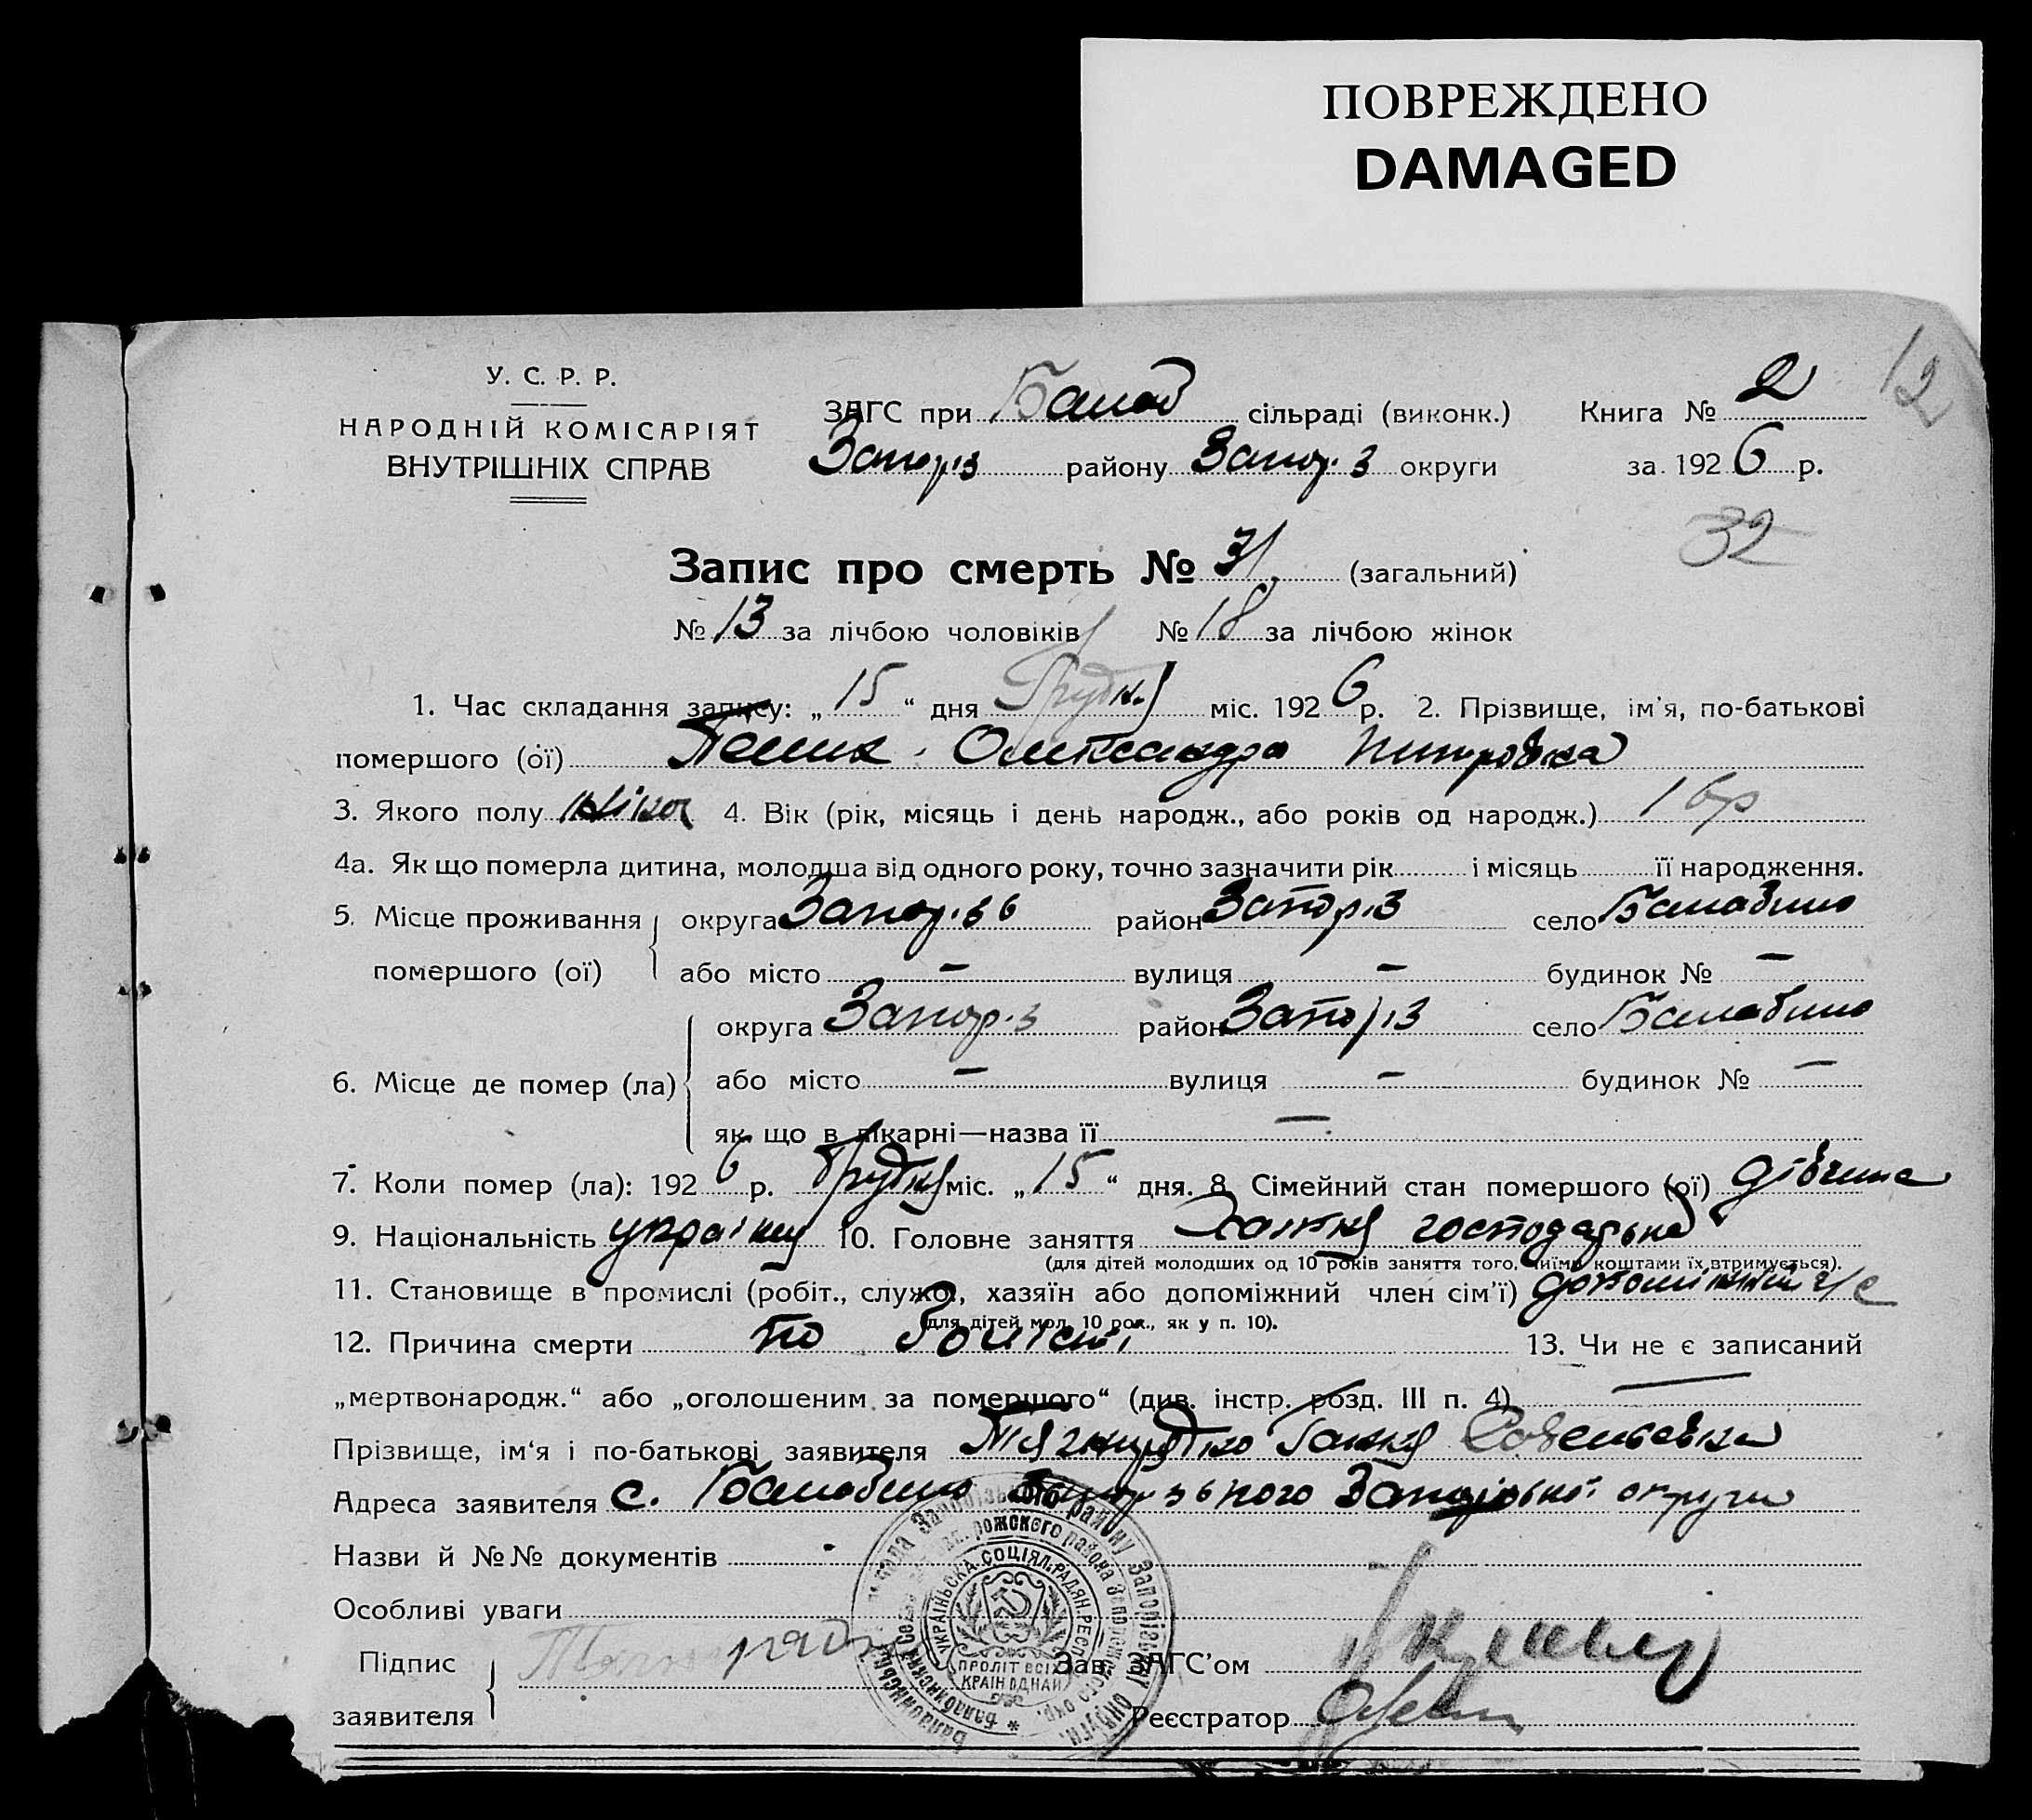 ПОВРЕЖДЕНО
DAMAGED
12
У. С. Р. Р.
НАРОДНІЙ КОМІСАРІЯТ
ВНУТРІШНІХ СПРАВ
ЗАГС при Балаб сільраді (виконк.) Книга № 2
Запор.з району Запор.з округи за 1926 р.
32
Запис про смерть № 31 (загальний)
№ 13 за лічбою чоловіків № 18 за лічбою жінок
1. Час складання запису: „15“ дня Грудня міс. 1926 р. 2. Прізвище, ім'я, по-батькові
помершого (ої) Олександра
3. Якого полу жіноч 4. Вік (рік, місяць і день народж., або років од народж.)
4а. Як що померла дитина, молодша від одного року, точно зазначити рік і місяць її народження.
5. Місце проживання округа Запор. район Запор.з село Балабино
помершого (ої) або місто – вулиця – будинок № –
округа Запор.з район Запор.з село Балабино
6. Місце де помер (ла) або місто – вулиця – будинок № –
як що в лікарні—назва її –
7. Коли помер (ла): 1926 р. Грудня міс. „15“ дня. 8. Сімейний стан помершого (ої) дівчина
9. Національність україн 10. Головне заняття господарька
(для дітей молодших од 10 років заняття того, чиїми коштами їх втримується).
11. Становище в промислі (робіт., служб., хазяїн або допоміжний член сім'ї) допоміжний ч/с
(для дітей мол. 10 рок., як у п. 10).
12. Причина смерти по 13. Чи не є записаний
„мертвонародж.“ або „оголошеним за помершого“ (див. інстр. розд. III п. 4) —
Прізвище, ім'я і по-батькові заявителя Ганна
Адреса заявителя с. Балабино Запорізької округи
Назви й №№ документів
Особливі уваги
Підпис
заявителя
Зав. ЗАГС'ом
Реєстратор
УКРАЇНСЬКА СОЦІЯЛ. РАДЯН. РЕСП.
ПРОЛІТ ВСІХ
КРАЇН ЄДНАЙ